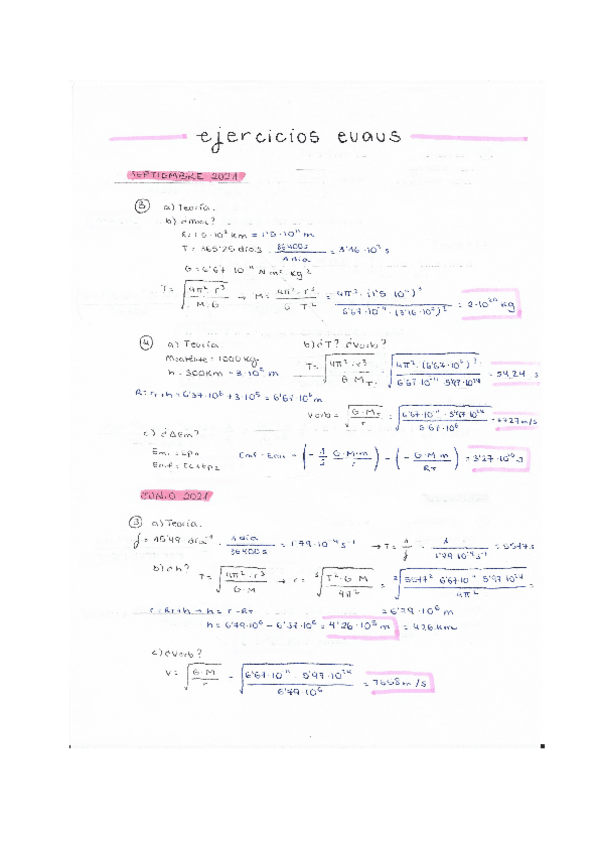 ejercicios evaus
SEPTIEMBRE 2021
③ a) Teoría.
b) ¿Msol?
R = 1'5 · 10⁸ km = 1'5 · 10¹¹ m
T = 365'25 días · 86400s / 1 día = 3'16 · 10⁷ s
G = 6'67 · 10⁻¹¹ N m² kg⁻²
T = √(4π² · r³ / M · G) → M = 4π² · r³ / G · T² = 4π² · (1'5 · 10¹¹)³ / 6'67 · 10⁻¹¹ · (3'16 · 10⁷)² = 2 · 10³⁰ kg
④ a) Teoría b) ¿T? ¿Vorb?
= 1000 kg
h = 300 km = 3 · 10⁵ m
T = √(4π² · r³ / G · MT) = √(4π² · (6'67 · 10⁶)³ / 6'67 · 10⁻¹¹ · 5'97 · 10²⁴) = 5424 s
R = r + h = 6'37 · 10⁶ + 3 · 10⁵ = 6'67 · 10⁶ m
Vorb = √(G · MT / r) = √(6'67 · 10⁻¹¹ · 5'97 · 10²⁴ / 6'67 · 10⁶) = 7727 m/s
c) ¿ΔEm?
Emf - Emi = (- 1/2 G · M · m / r) - (- G · M · m / RT) = 3'27 · 10¹⁰ J
JUNIO 2021
③ a) Teoría.
f = 15'49 día⁻¹ · 1 día / 86400 s = 1'79 · 10⁻⁴ s⁻¹ → T = 1 / f = 1 / 1'79 · 10⁻⁴ s⁻¹ = 5577 s
b) ¿h? T = √(4π² · r³ / G · M) → r = ³√(T² · G · M / 4π²) = ³√(5577² · 6'67 · 10⁻¹¹ · 5'97 · 10²⁴ / 4π²) =
r = RT + h → h = r - RT = 6'79 · 10⁶ m
h = 6'79 · 10⁶ - 6'37 · 10⁶ = 4'26 · 10⁵ m = 426 km
c) ¿Vorb?
V = √(G · M / r) = √(6'67 · 10⁻¹¹ · 5'97 · 10²⁴ / 6'79 · 10⁶) = 7658 m/s